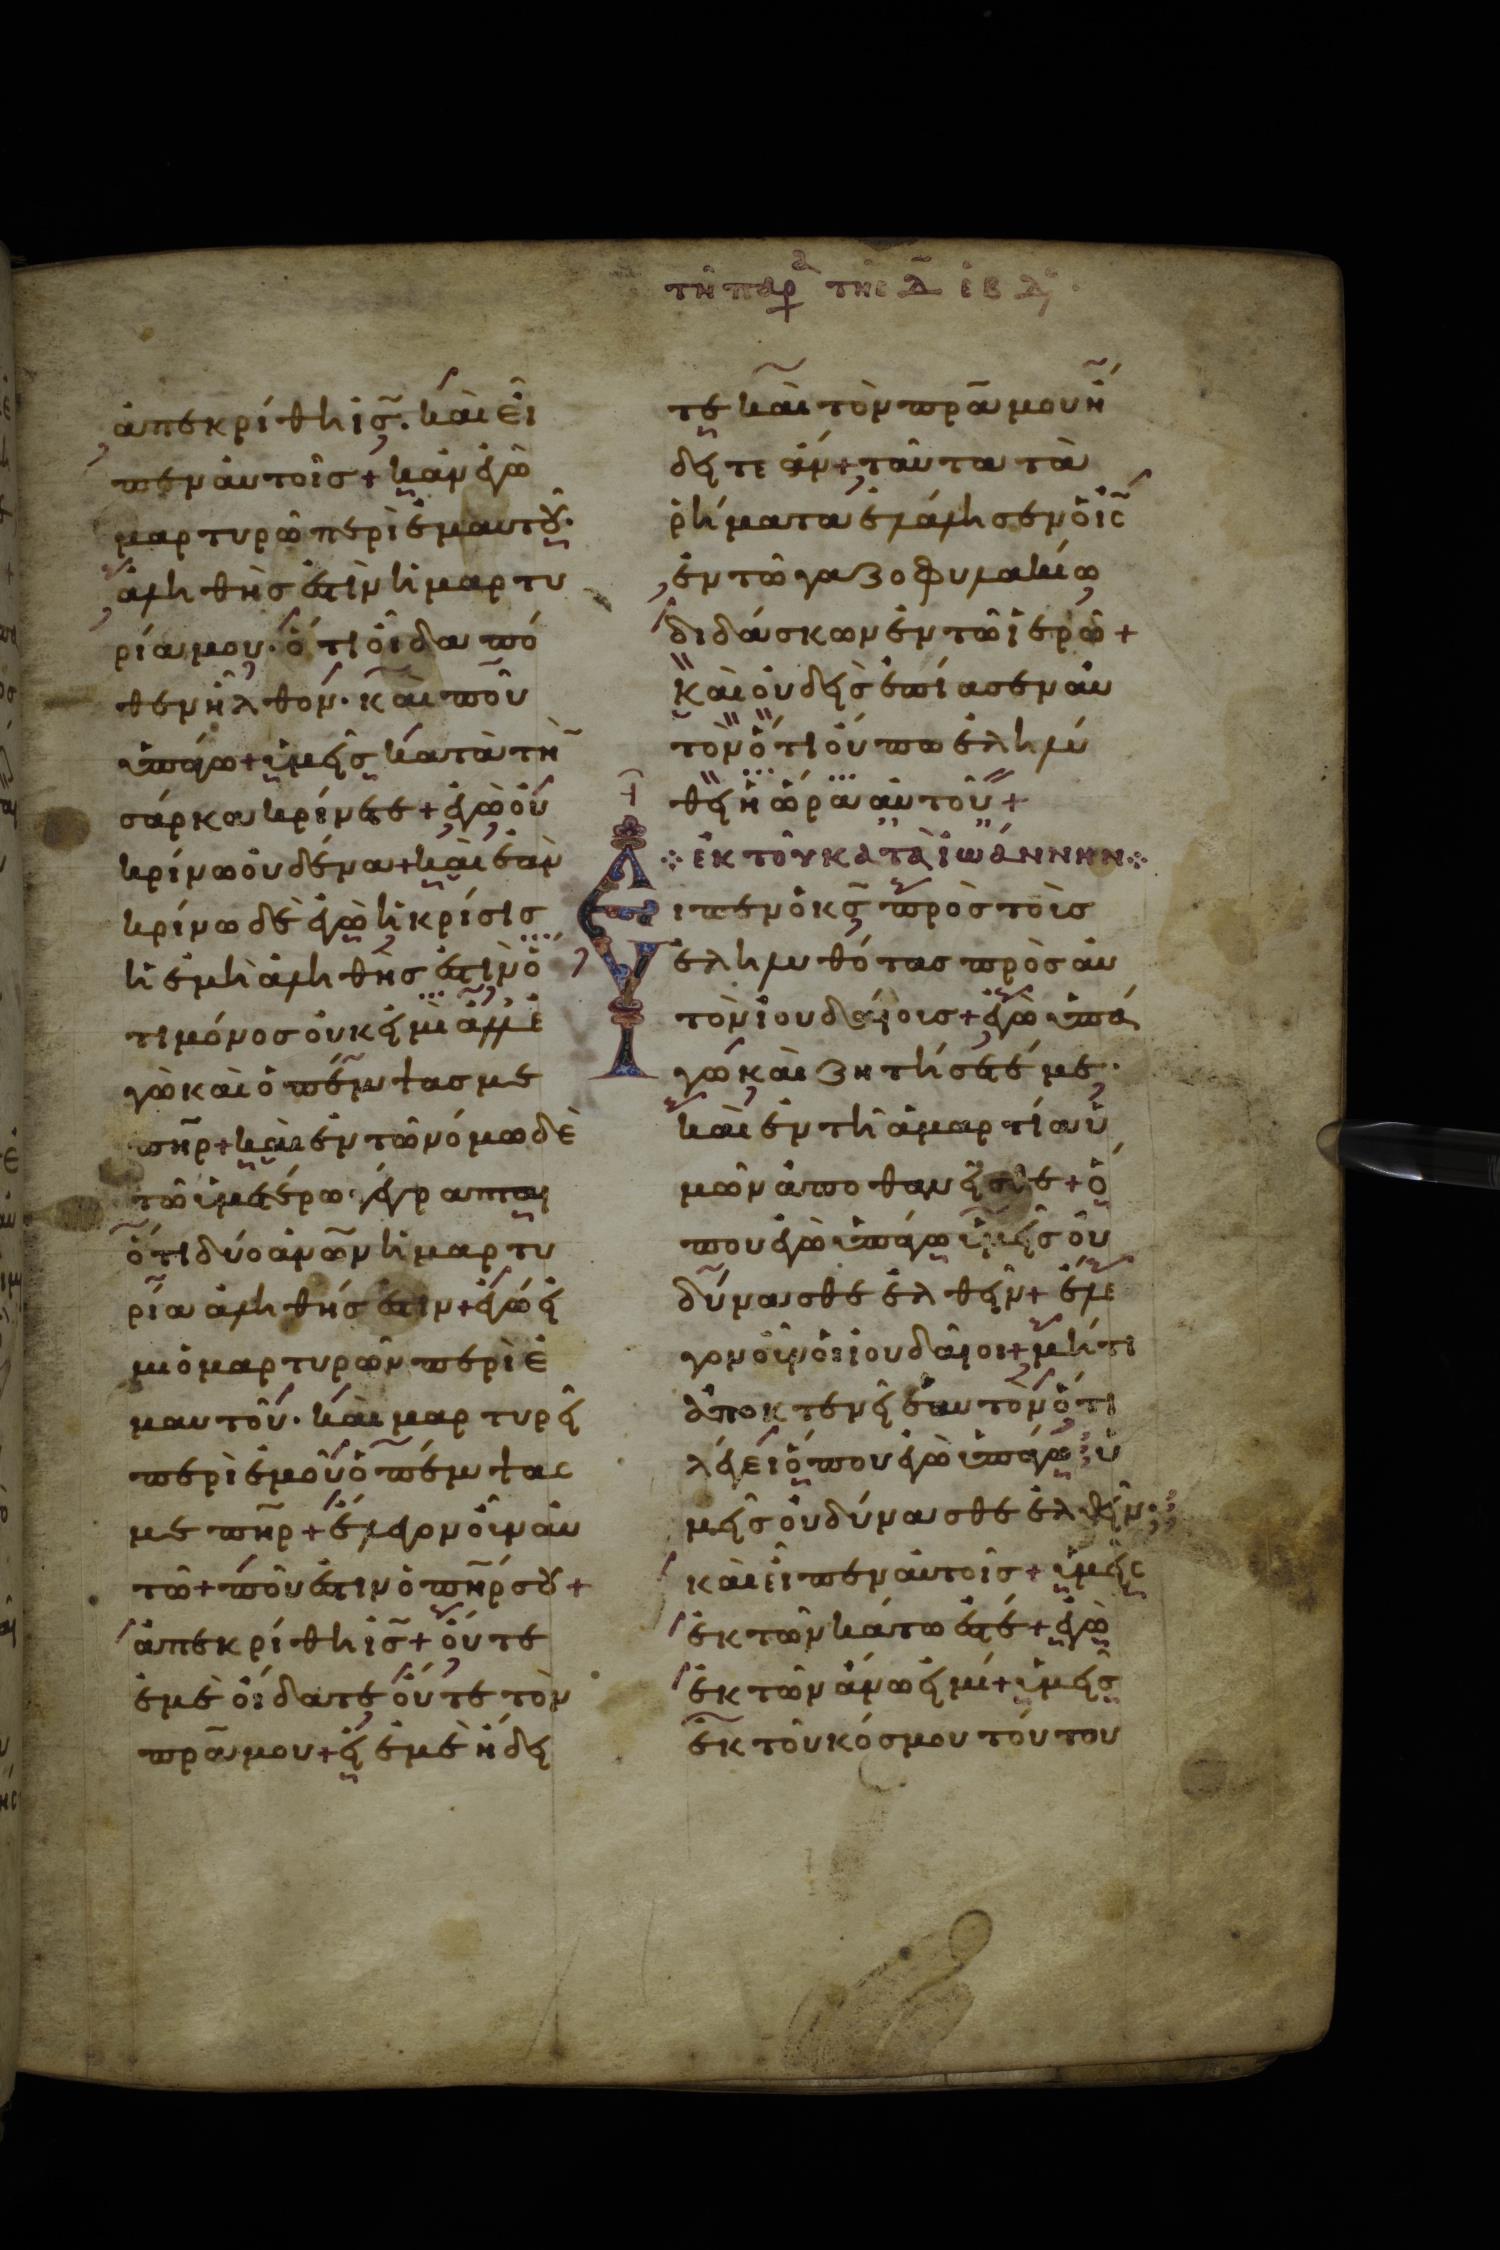 τῆ παρ^α τῆς Δ̅ ἑβδ
ἀπεκρίθη ις̃. καὶ εἶ
πεν αὐτοῖσ + κἀν ἐγὼ
μαρτυρῶ περὶ ἐμαυτοῦ·
ἀληθὴσ ἐστὶν ἡ μαρτυ
ρία μου· ὅτι οἶδα πό
θεν ἦλθον· καὶ ποῦ
ὑπάγω + ὑμεῖς κατὰ τὴ̃
σάρκα κρίνετε + ἐγὼ οὐ
κρίνω οὐδένα + καὶ ἐὰν
κρίνω δὲ ἐγὼ ἡ κρίσισ
ἡ ἐμὴ ἀληθήσ ἐστιν ὅ
τι μόνοσ οὐκ εἰμὶ ἀλλ ἐ
γὼ καὶ ὁ πέμψασ με
πη̃ρ + καὶ ἐν τῶ νόμω δὲ
τῶ ὑμετέρω· γέγραπται
ὅτι δύο ἀνω̃ν ἡ μαρτυ
ρία ἀληθήσ ἐστιν + ἐγώ εἰ
μι ὁ μαρτυρῶν περὶ ἐ
μαυτοῦ. καὶ μαρτυρεῖ
περὶ ἐμοῦ ὁ πέμψας
με πη̃ρ + ἔλεγον οὖν αὐ
τῶ + ποῦ ἐστιν ὁ πη̃ρ σου +
ἀπεκρίθη ις̃ + οὔτε
ἐμὲ οἴδατε οὔτε τὸν
πρ̃α μου + εἰ ἐμὲ ἤδει
τε καὶ τὸν πρ̃α μου ἤ
δειτε ἄν + ταῦτα τὰ
ῥήματα ἐλάλησεν ὁ ις̃
ἐν τῶ γαζοφυλακίω
διδάσκων ἐν τῶ ἱερῶ +
καὶ οὐδεὶσ ἐπίασεν αὐ
τὸν ὅτι οὔπω ἐληλύ
θει ἡ ὥρα αὐτοῦ +
ἐκ τοῦ κατὰ ἰωάννην
Εἶπεν ὁ κς̃ πρὸσ τοὺσ
ἐληλυθότασ πρὸσ αὐ
τὸν ἰουδαίουσ + ἐγὼ ὑπά
γω καὶ ζητήσετέ με·
καὶ ἐν τῆ ἁμαρτία ὑ
μῶν ἀποθανεῖσθε + ὅ
που ἐγὼ ὑπάγω ὑμεῖσ οὐ
δύνασθε ἐλθεῖν + ἔλε
γον οὖν οἱ ἰουδαῖοι + μήτι
ἀποκτενεῖ ἑαυτὸν ὅτι
λέγει ὅπου ἐγὼ ὑπάγω ὑ
μεῖσ οὐ δύνασθε ἐλθεῖν;
καὶ εἶπεν αὐτοῖσ + ὑμεῖς
ἐκ τῶν κάτω ἐστέ + ἐγὼ
ἐκ τῶν ἄνω εἰμί + ὑμεῖς
ἐκ τοῦ κόσμου τούτου